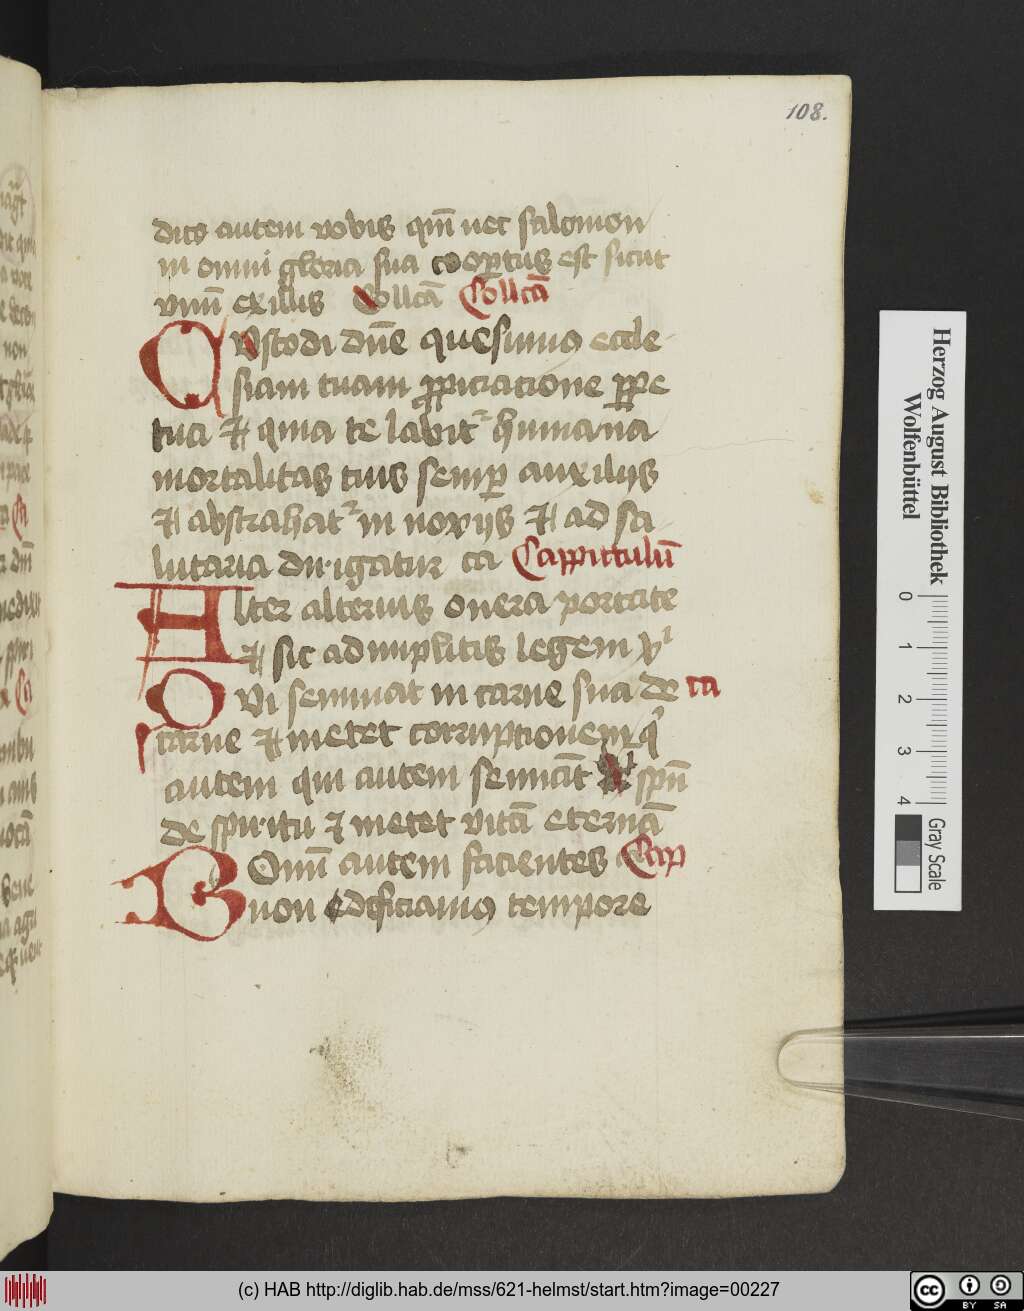 108.
dico autem vobis qm̄ nec salomon
in omni gloria sua coop̄tus est sicut
vnū ex illis Collcā Collcā
Cvstodi dn̄e quesumus eccle
siam tuam ꝓpiciacione ꝑpe
tua et quia te labit᷑ humana
mortalitas tuis semꝑ auxilijs
et abstrahat᷑ in noxijs et ad sa
lutaria dirigatur ca Cappittulū
Alter alterius onera portate
et sic adimplitis legem
Qvi seminat in carne sua de ca
carne et metet corrupcionem
autem qui autem semināt spm̄
de spiritu et metet vitā eternā
Bonū autem facientes Cap
non edificiamus tempore
Herzog August Bibliothek
Wolfenbüttel
0 1 2 3 4
Gray Scale
(c) HAB http://diglib.hab.de/mss/621-helmst/start.htm?image=00227
cc BY SA